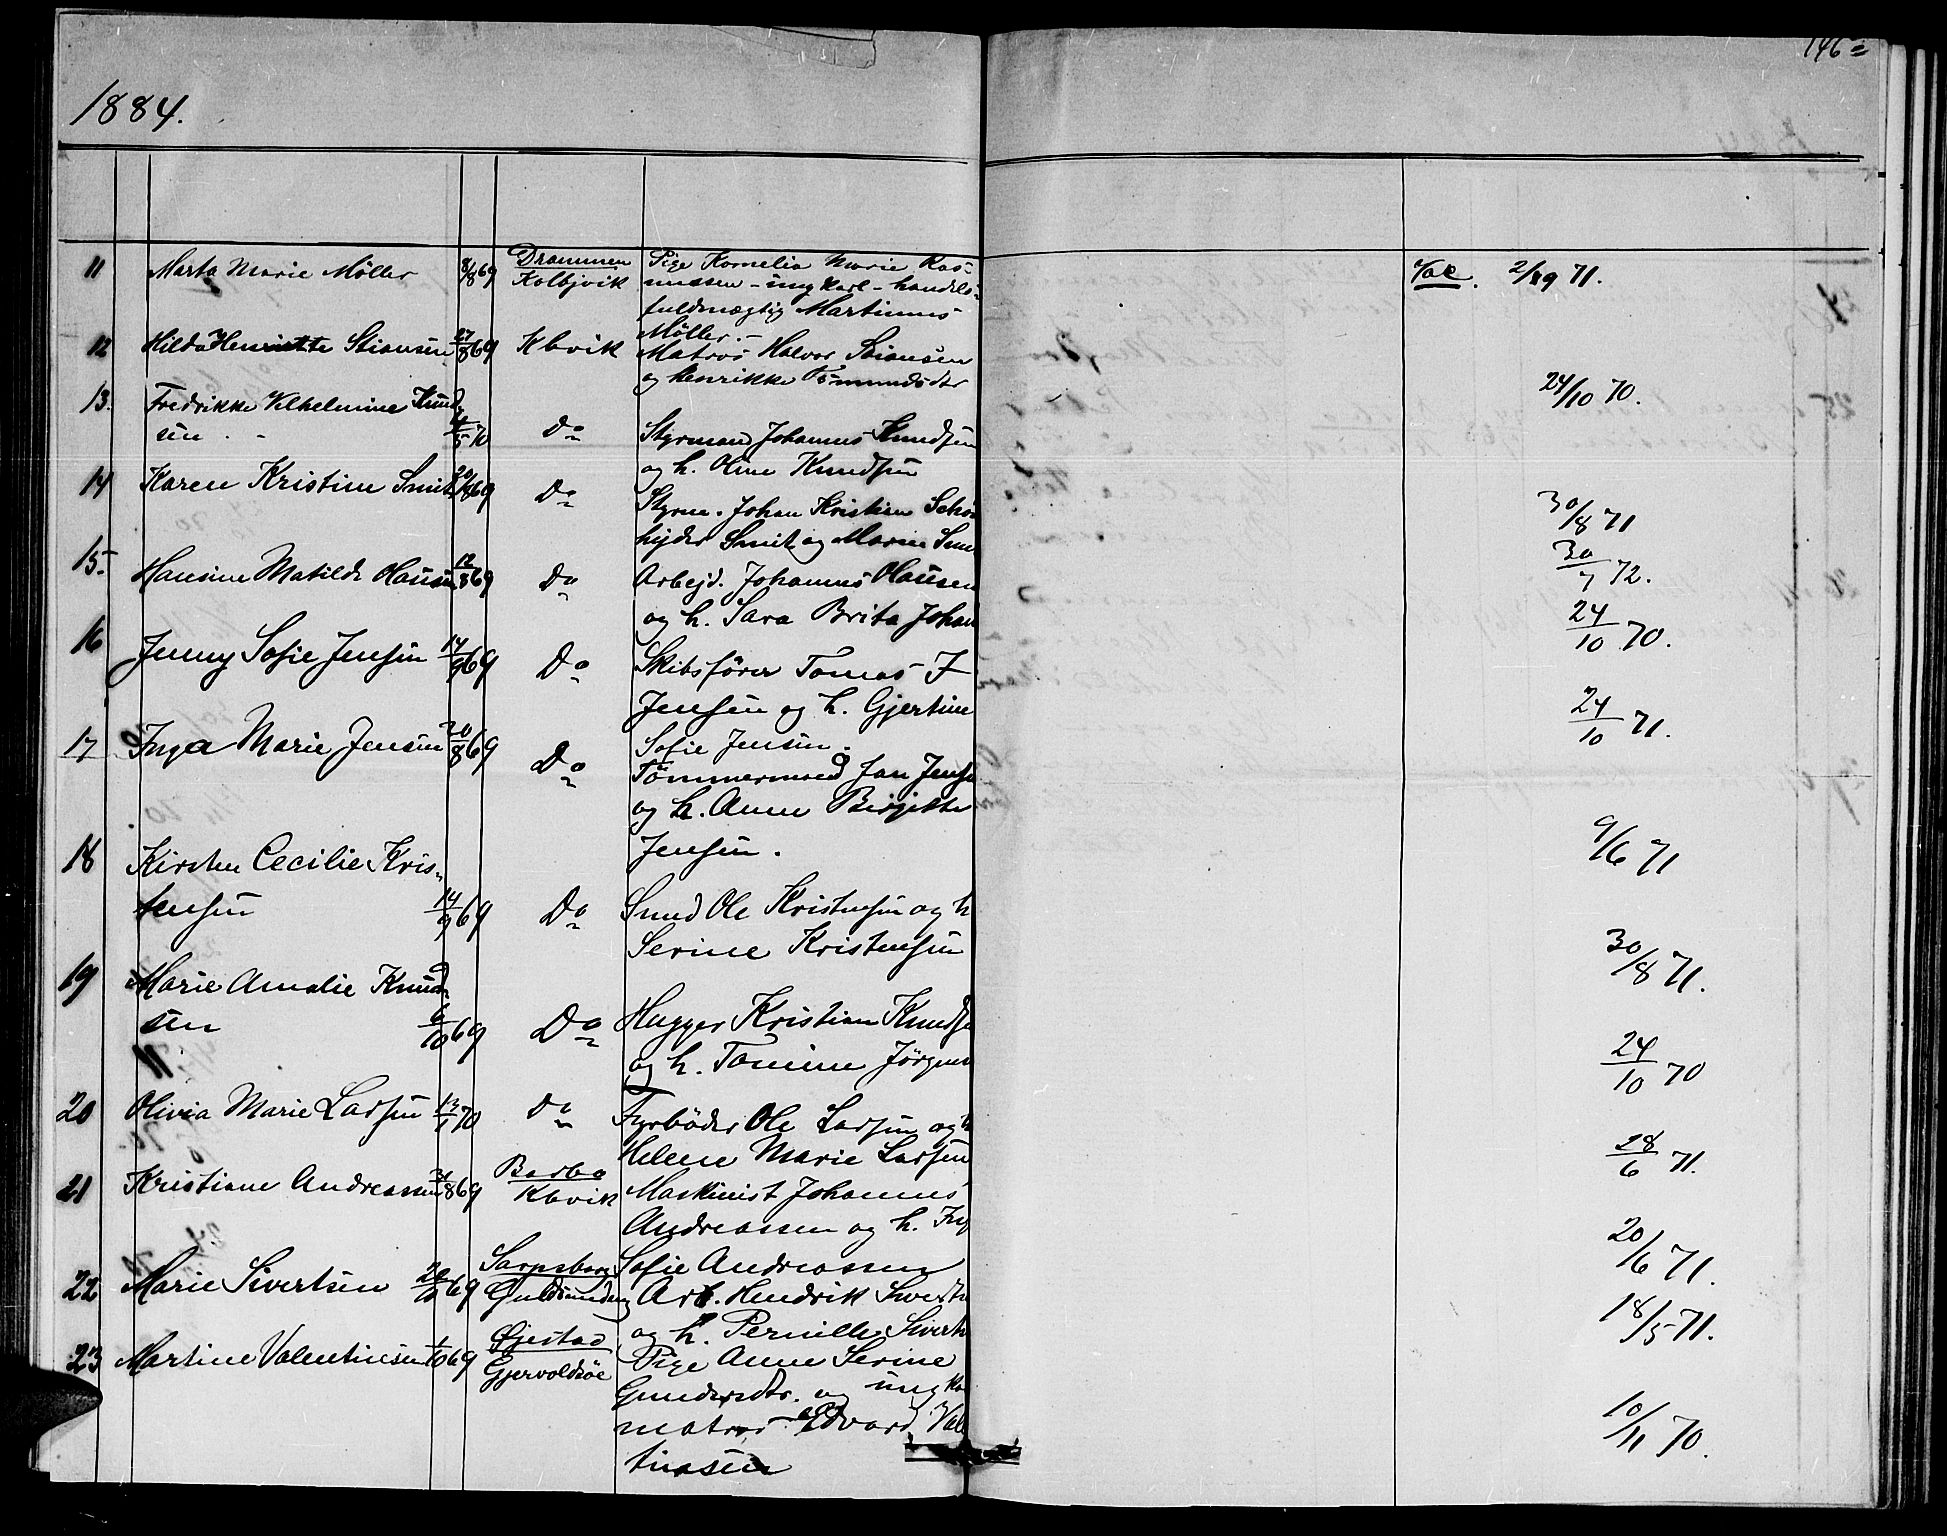 1884.
146
11 Marta Marie Möller 8/8 69 Drammen Pige Kornelia Marie Ras- Vac. 2/9 71.
Kolbjvik mussen - ungkarl - handels-
fuldmægtig Martinus
Möller. -
12 Hilda Henriette Stiansen 27/8 69 Kbvik Matros Halvor Stiansen
og Henrikke 24/10 70.
13. Fredrikke Vilhelmine Knud-
sen. 5 70 Do Styrmand Johannes Knudsen
og h. Oline Knudsen
14 Karen Kristine Smit 20/8 69 Do Styrm. Johan Kristian Schön 30/8 71
hyder Smit og Marie Smi
15. Hansine Matilde Olausen 12/8 69 Do Arbejd. Johannes Olausen 30/7 72.
og h. Sara Brita Johan
16 Jenny Sofie Jensen 14/9 69 Do Skibsförer Tomas J 24/10 70.
Jensen og h. Gjertine
Sofie Jensen.
17 Inga Marie Jensen 20/8 69 Do Tömmermand Jan Jense 24/10 71.
og h. Anne Birgitte
Jensen.
18 Kirsten Cecilie Kris-
tensen 14/9 69 Do Smed Ole Kristensen og h 9/6 71
Serine Kristensen
19 Marie Amalie Knud-
sen 6/10 69 Do Hugger Kristian Knudse 30/8 71.
og h. Tomine Jörgens
20 Olivia Marie Larsen 13/1 70 Do Fyrböder Ole Larsen og h 24/10 70
Helene Marie Larsen
21 Kristiane Andreassen 31/8 69 Barbo Maskinist Johannes 28/6 71.
Kbvik Andreassen og h. Ing
Sofie Andreassen
22 Marie Sivertsen 69 Sarpsborg Arb. Hendrik Sivertse 20/6 71.
og h. Pernille Sivert
23 Martine Valentinsen 1/10 69 Øjestad Pige Anne Serine 18/5 71.
Gjervoldsøe Gundersdtr. og ung ka
matros Edvard Val
tinsen 10/11 70.